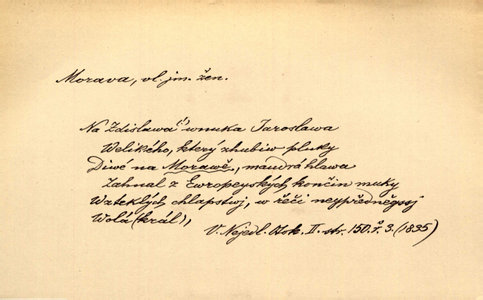 Morava, vl. jm. žen.
Na Zdislawa (') wnuka Jaroslawa
Welikého, který zhubiw pluky
Diwé na Morawě, maudrá hlawa
Zahnal z Ewropeyských končin muky
Wzteklých chlapstwj, w řeči neypředněgssj
Wolá (král),
V. Nejedl. Otok. II. str. 150. ř. 3. (1835)